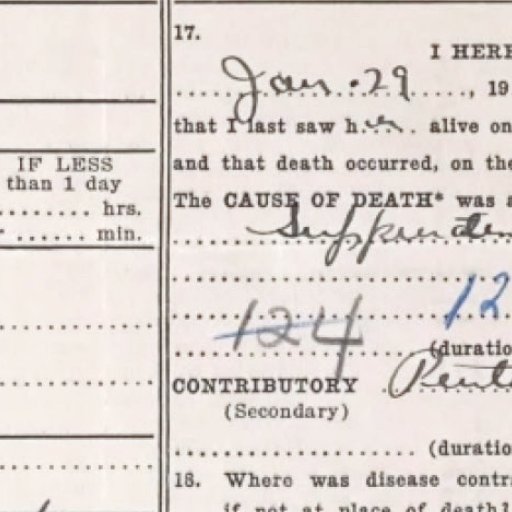 17.
I HERE
Jan. 29, 19
that I last saw h... alive on
IF LESS
and that death occurred, on the
than 1 day
The CAUSE OF DEATH* was a
hrs.
min.
12
124
(duratio
CONTRIBUTORY
(Secondary)
(duratio
18. Where was disease contr
if not at place of death?